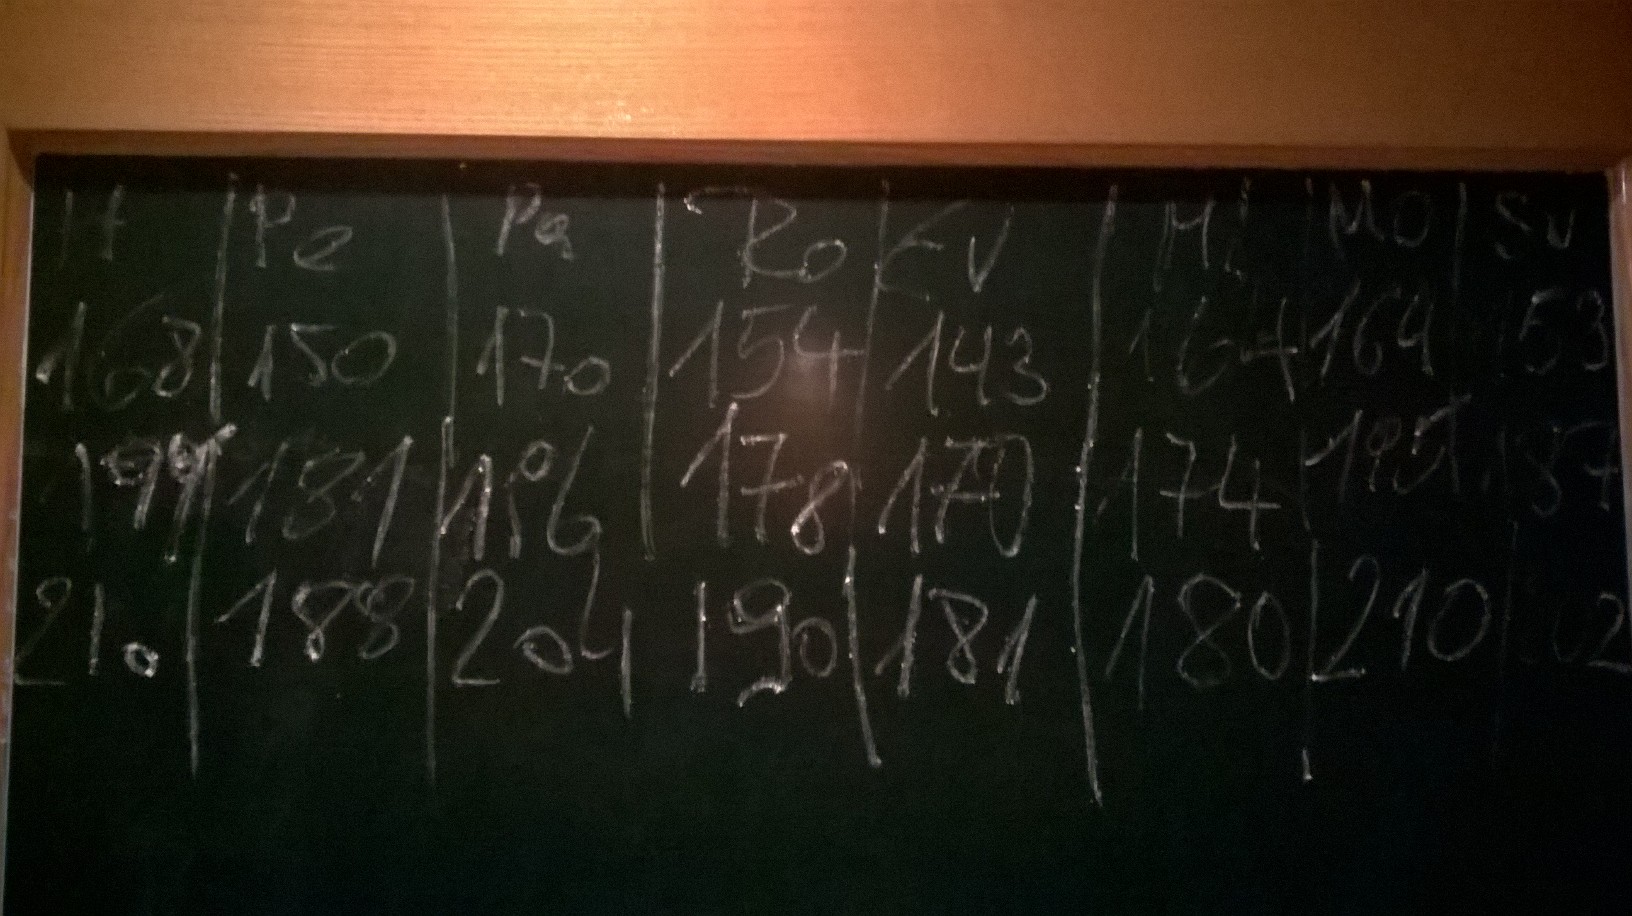 H Pe Pa Ro Ev Mi Mo Sv
168 150 170 154 143 164 164 153
181 196 178 170 174 187
210 188 204 190 181 180 210 202